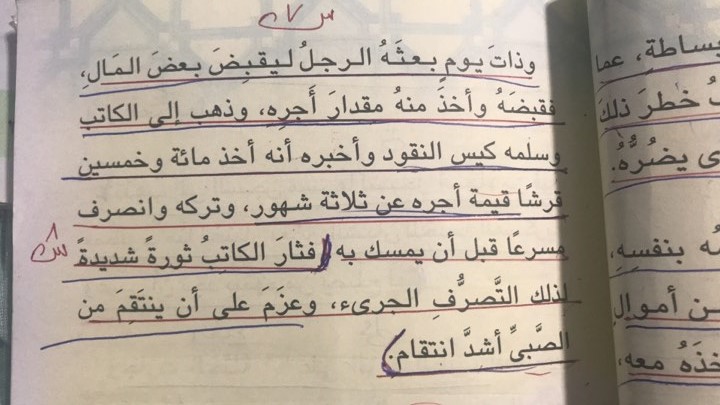 س٧
وذاتَ يومٍ بعثَهُ الرجلُ ليقبِضَ بعضَ المَالِ،
فقبضَهُ وأخذَ منهُ مقدارَ أَجرِه، وذهب إلى الكاتب
وسلمه كيس النقود وأخبره أنه أخذ مائة وخمسين
قرشًا قيمة أجره عن ثلاثة شهور، وتركه وانصرف
مسرعًا قبل أن يمسك به فثارَ الكاتبُ ثورةً شديدةً
س٨
لذلك التَّصرُّفِ الجرىء، وعزَمَ على أن ينتَقِمَ من
الصَّبىِّ أشدَّ انتقام.
بساطةٍ، عما
خطرَ ذلكَ
ى يضُرُّهُ.
ـهُ بنفسِهِ،
ـن أموالِ
خذَهُ معه،